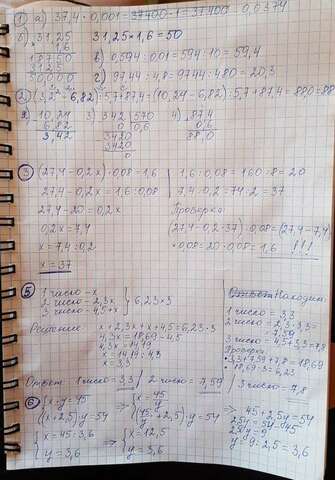 1) а) 37,4 · 0,001 = 37400 · 1 = 37400 = 0,0374
б) 31,25 31,25 × 1,6 = 50
× 1,6
18750 в) 0,594 : 0,01 = 594 : 10 = 59,4
3125
50,000 г) 97,44 : 4,8 = 9744 : 480 = 20,3
2) (3,2² - 6,82) : 5,7 + 87,4 = (10,24 - 6,82) : 5,7 + 87,4 = 88
10,24 3) 342 570 4) 87,4
6,82 0 0,6 0,6
3,42 3420 88,0
3420
0
3) (27,4 - 0,2x) · 0,08 = 1,6 1,6 : 0,08 = 160 : 8 = 20
27,4 - 0,2x = 1,6 : 0,08 7,4 : 0,2 = 74 : 2 = 37
27,4 - 20 = 0,2x Проверка
0,2x = 7,4 (27,4 - 0,2 · 37) · 0,08 = (27,4 - 7,4)
x = 7,4 : 0,2 · 0,08 = 20 · 0,08 = 1,6 !!!
x = 37
5) Находим:
1 число - x 1 число = 3,3
2 число - 2,3x 6,23 · 3 2 число = 2,3 · 3,3 =
3 число - 4,5 + x = 7,59
Решение x + 2,3x + x + 4,5 = 6,23 · 3 3 число = 4,5 + 3,3 = 7,8
4,3x = 18,69 - 4,5 Проверка
4,3x = 14,19 3,3 + 7,59 + 7,8 = 18,69
x = 14,19 : 4,3 18,69 : 3 = 6,23
x = 3,3
Ответ 1 число = 3,3 / 2 число = 7,59 / 3 число - 7,8
6) x · y = 45 x = 45/y
(x + 2,5) · y = 54 (45/y + 2,5) · y = 54 => 45 + 2,5y = 54
2,5y = 54 - 45
x = 45 : 3,6 x = 12,5 2,5y = 9
y = 3,6 y = 3,6 y = 9 : 2,5 = 3,6